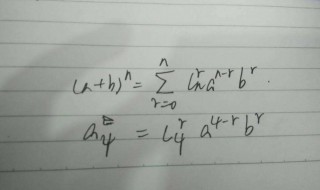 (a+b)ⁿ = ∑ⁿᵣ₌₀ Cₙʳ aⁿ⁻ʳ bʳ.
a₄ = C₄ʳ a⁴⁻ʳ bʳ